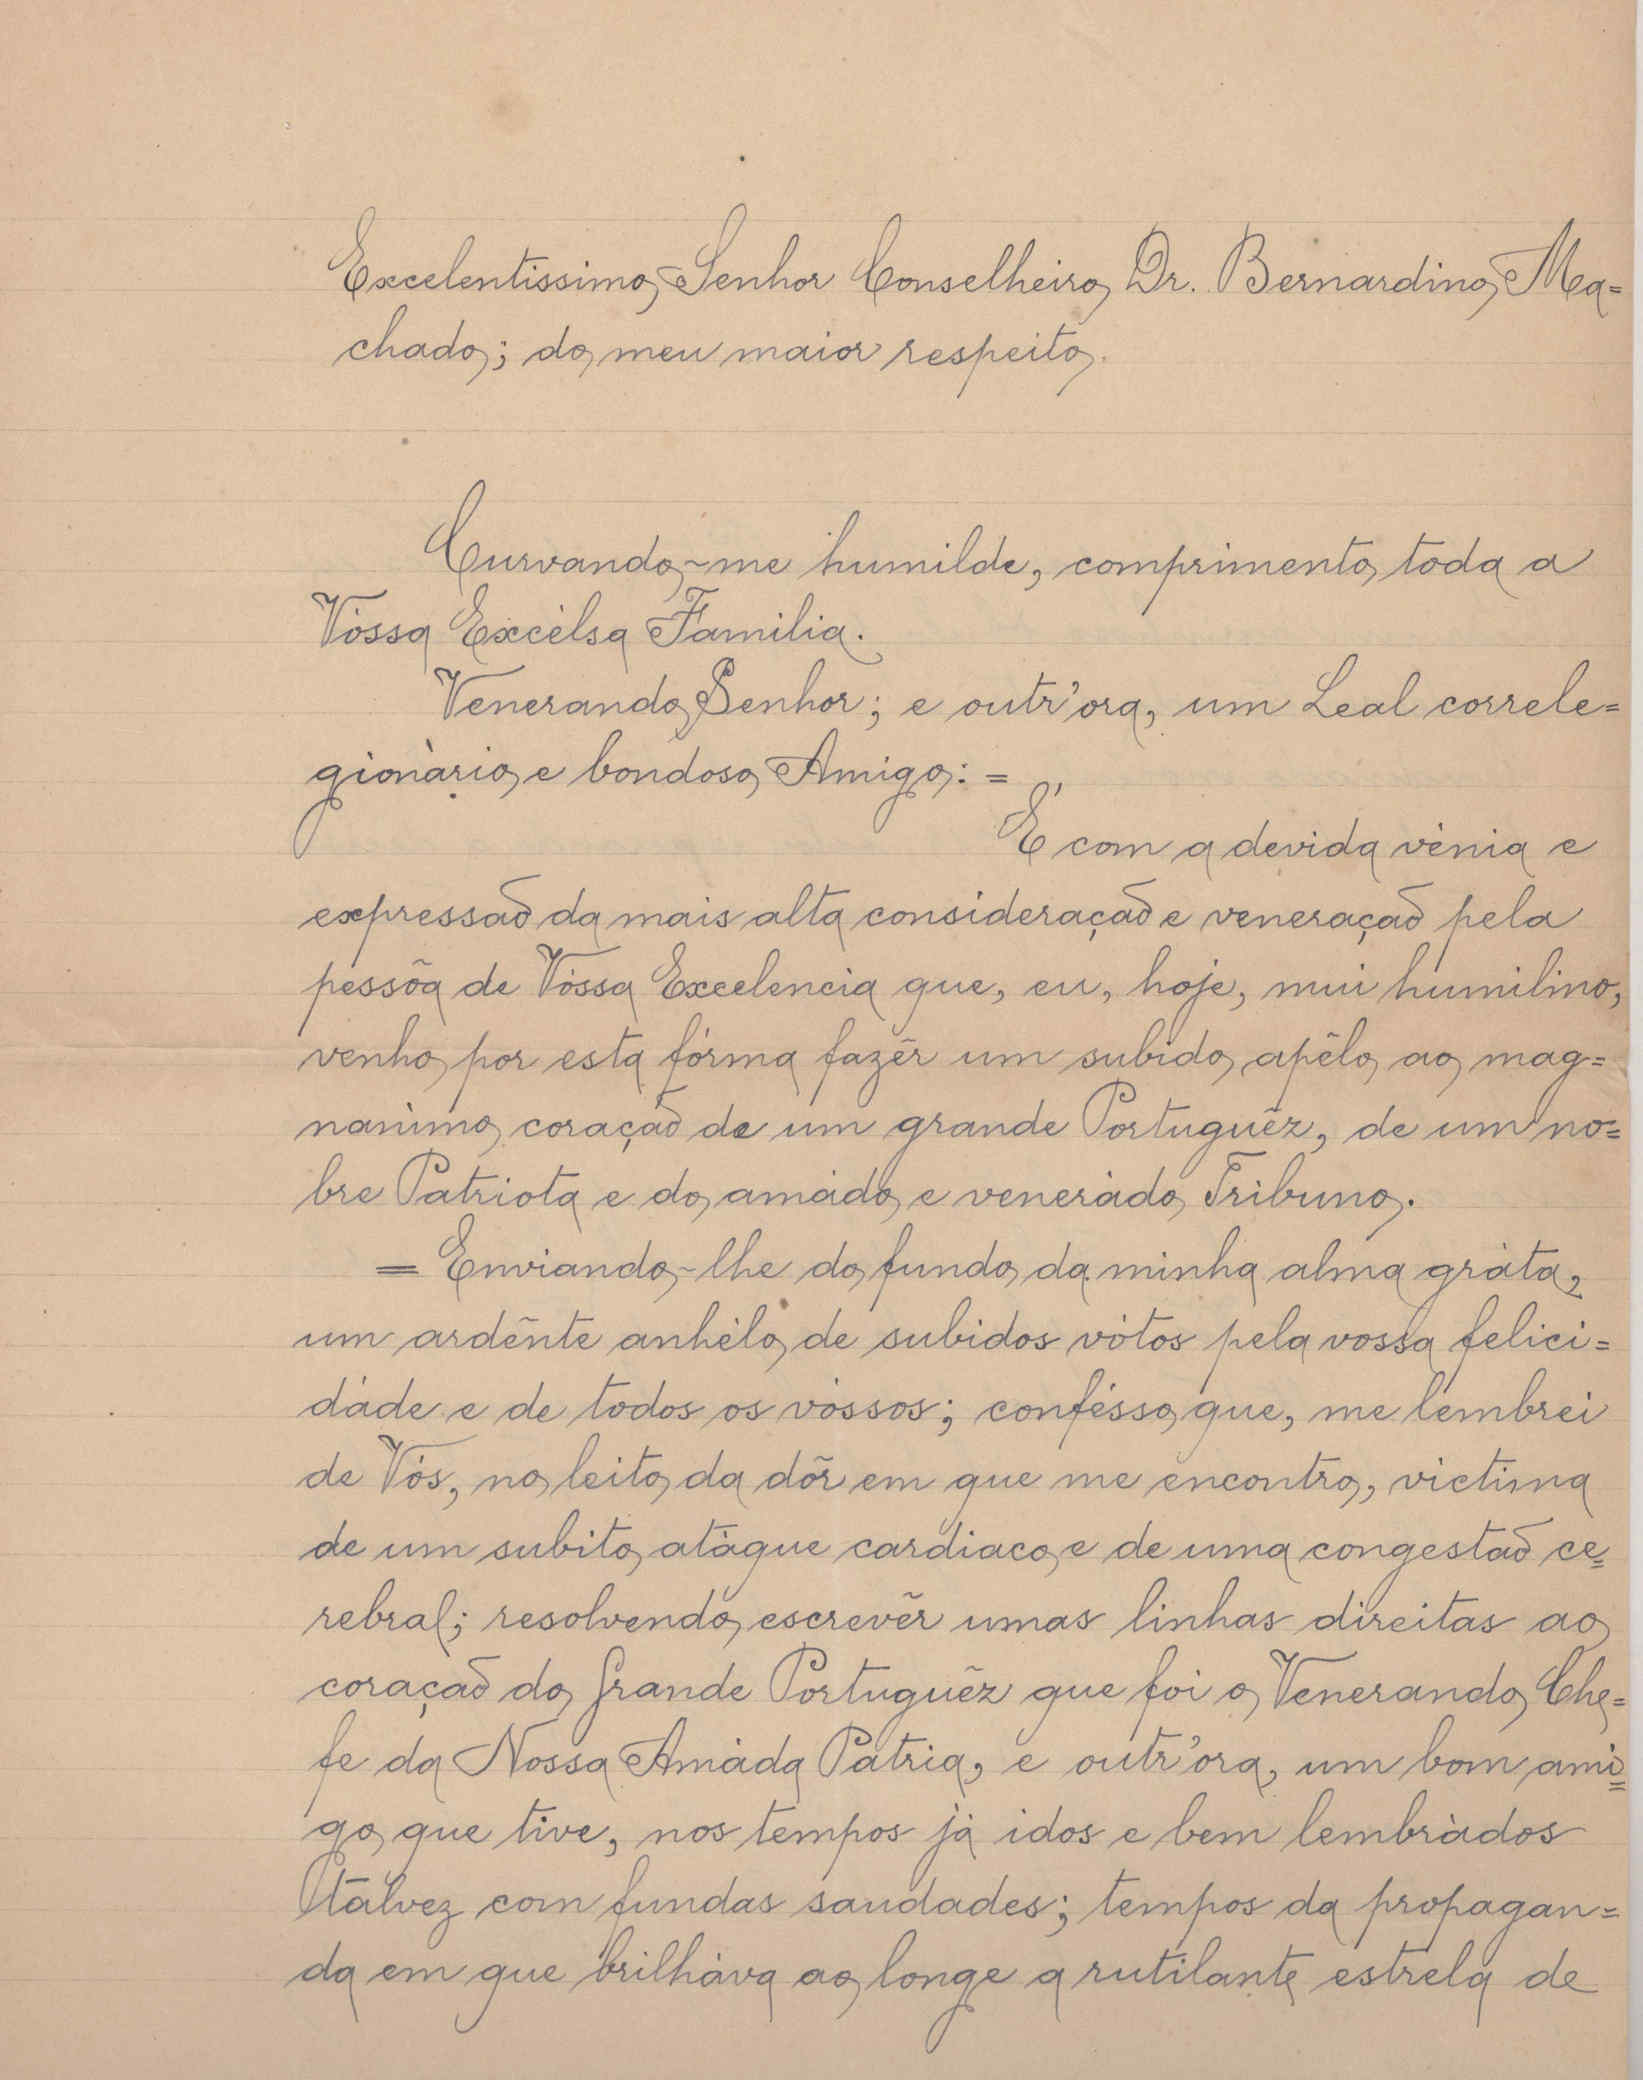 Excelentissimo Senhor Conselheiro Dr. Bernardino Ma=
chado; do meu maior respeito.
Curvando-me humilde, comprimento toda a
Vóssa Excélsa Familia.
Venerando Senhor; e outr'ora, um Leal correle=
gionàrio e bondoso Amigo: =
É com a devida vénia e
expressaõ da mais alta consideraçaõ e veneraçaõ pela
pessõa de Vóssa Excelencia que, eu, hoje, mui humilimo,
venho por esta fórma fazêr um subido apêlo ao mag=
nanimo coraçaõ de um grande Portuguêz, de um no=
bre Patriota e do amádo e veneràdo Tribuno.
= Enviando-lhe do fundo da minha alma gráta,
um ardênte anhélo de subidos vótos pela vossa felici=
dáde e de todos os vóssos; confésso que, me lembrei
de Vós, no leito da dõr em que me encontro, victima
de um subito atáque cardiaco e de uma congestaõ ce=
rebral; resolvendo escrevêr umas linhas direitas ao
coraçaõ do Grande Portuguêz que foi o Venerando Che=
fe da Nossa Amáda Patria, e outr'ora, um bom ami=
go que tive, nos tempos já idos e bem lembràdos
talvez com fundas saudades; tempos da propagan=
da em que brilháva ao longe a rutilante estrela de